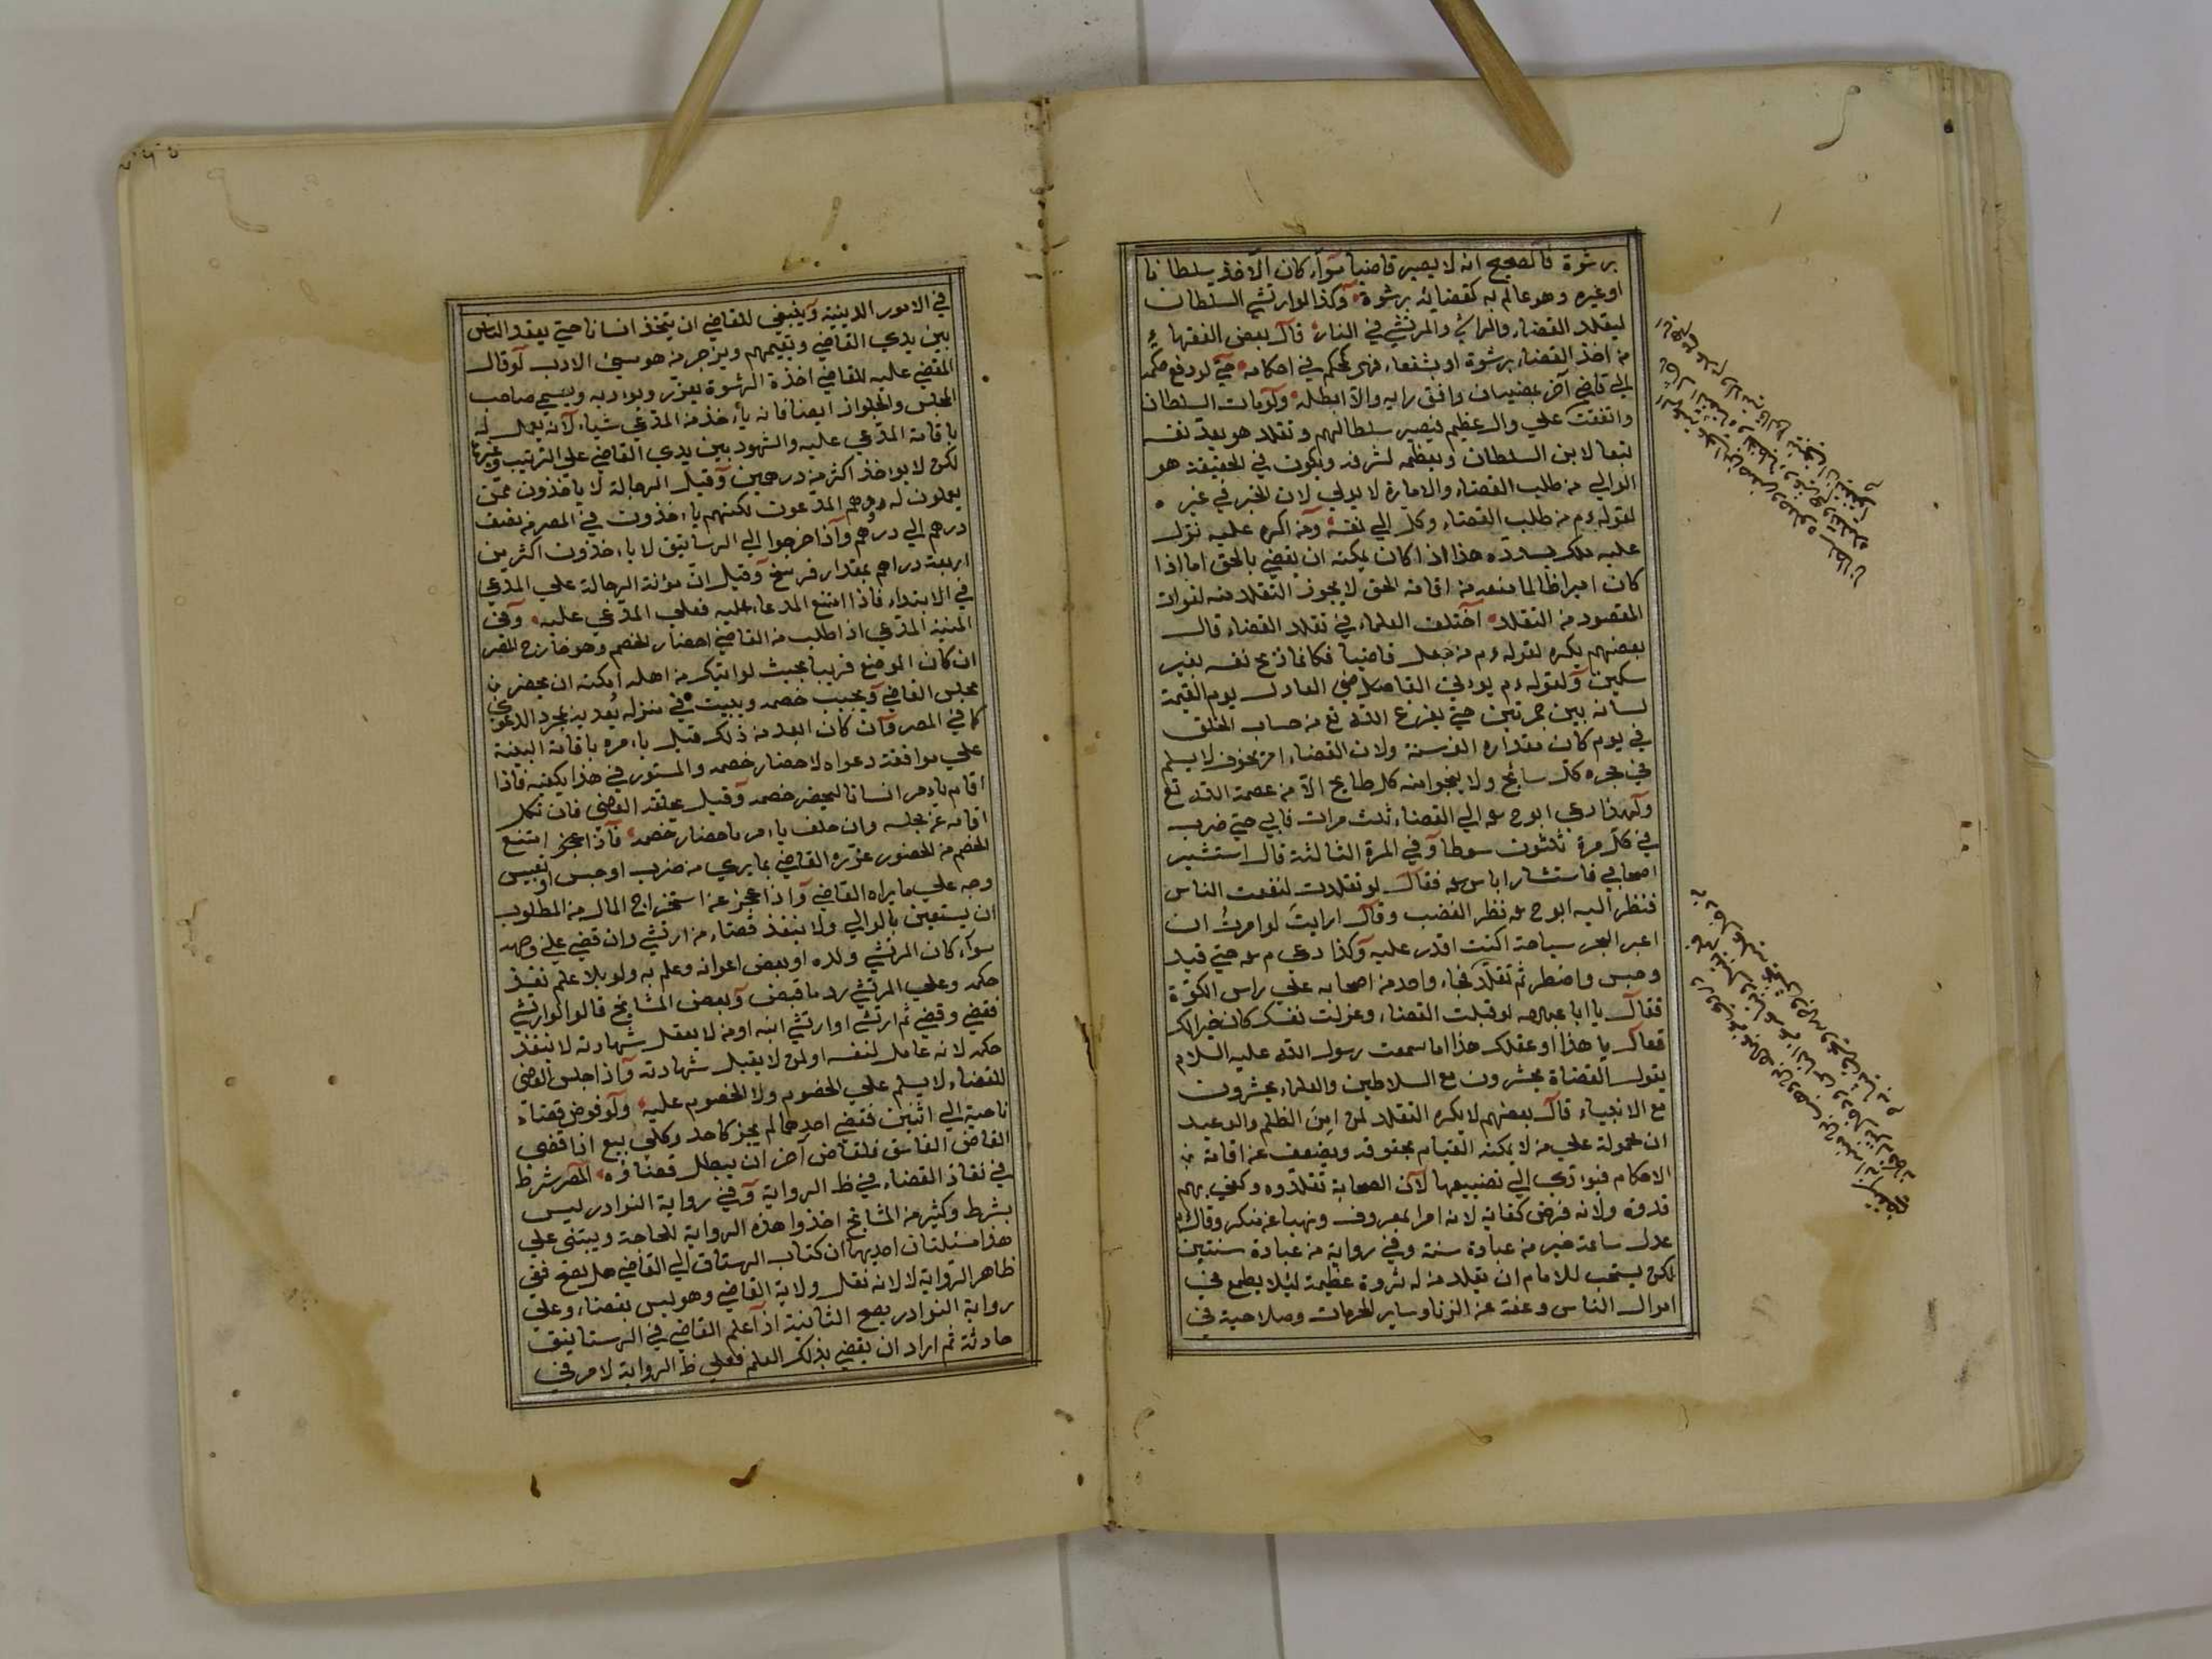 برشوة فالصحيح انه لا يصير قاضيا سواء كان الآخذ سلطانا
او غيره وهو عالم به كقضائه برشوة وكذا لو ارتشي السلطان
ليقلد القضاء والراشي والمرتشي في النار قال بعض الفقهاء
من اخذ القضاء برشوة او بشفعاء فهو كمحكم في احكامه حتي لو رفع حكمه
الي قاضي آخر يمضيه ان وافق رايه والا ابطله ولو مات السلطان
واتفقت علي وال عظيم فيصير سلطانهم وتقلد هو يعد نفسه
تبعا لابن السلطان ويعظمه لشرفه ويكون في الحقيقة هو
الوالي من طلب القضاء والامارة لا يولي لان الخير في غيره
لقوله ءم من طلب القضاء وكل الي نفسه ومن اكره عليه نزل
عليه ملك يسدده هذا اذا كان يمكنه ان يقضي بالحق اما اذا
كان اميرا ظالما منعه من اقامة الحق لا يجوز التقلد منه لفوات
المقصود من التقلد اختلف العلماء في تقلد القضاء قال
بعضهم يكره لقوله ءم من جعل قاضيا فكانما ذبح نفسه بغير
سكين ولقوله ءم يوتي القاضي العادل يوم القيمة
لسانه بين جمرتين حتي يفرغ الله تع من حساب الخلق
في يوم كان مقداره الف سنة ولان القضاء امر مخوف لا يسلم
في بحره كل سابح ولا ينجوا منه كل طامح الا من عصمه الله تع
ولهذا دعي ابو ح الي القضاء ثلث مرات فابي حتي ضرب
في كل مرة ثلثون سوطا وفي المرة الثالثة قال استشير
اصحابي فاستشار ابا س فقال لو تقلدت لنفعت الناس
فنظر اليه ابو ح نظر الغضب وقال ارايت لو امرت ان
اعبر البحر سباحة اكنت اقدر عليه وكذا دعي م حتي قيد
وحبس واضطر ثم تقلد فجاء واحد من اصحابه علي راس الكوة
فقال يا ابا لو قبلت القضاء وعزلت نفسك كان خيرا لك
فقال يا هذا او عقلك هذا اما سمعت رسول الله عليه السلام
يقول القضاة يحشرون مع السلاطين والعلماء يحشرون
مع الانبياء قال بعضهم لا يكره التقلد لمن امن الظلم والوعيد
ان محمولة علي من لا يمكنه القيام بحقوقه ويضعف عن اقامة من
الاحكام فيؤدي الي تضييعها لان الصحابة تقلدوه وكفي بهم
قدوة ولانه فرض كفاية لانه امر بالمعروف ونهيا عن منكر وقال ءم
عدل ساعة خير من عبادة سنة وفي رواية من عبادة سنتين
لكن يستحب للامام ان يقلد من له ثروة عظيمة ليلا يطمع في
اموال الناس وعفة عن الزنا وساير المحرمات وصلاحية في
في الامور الدينية وينبغي للقاضي ان يتخذ انسانا حتي يقعد الناس
بين يدي القاضي ويقيمهم ويزجر من هو سيئ الادب لو قال
المقضي عليه للقاضي اخذة الرشوة يعزر ويوادبه ويسمي صاحب
المجلس والجلواز ايضا فانه يأخذ من المدعي شياء لانه يعمل له
باقامة المدعي عليه والشهود بين يدي القاضي علي الترتيب وغيرها
لكن لا يواخذ اكثر من درهمين وقيل الرجالة لا ياخذون ممن
يعملون له وهم المدعون لكنهم ياخذون في المصر من نصف
درهم الي درهم واذا خرجوا الي الرساتيق لا ياخذون اكثر من
اربعة دراهم بمقدار فرسخ وقيل ان مؤنة الرجالة علي المدعي
في الابتداء فاذا امتنع المدعاء عليه فعلي المدعي عليه وفي
المنية المدعي اذا طلب من القاضي احضار الخصم وهو خارج المصر
ان كان الموضع قريبا بحيث لو ابتكر من اهله امكنه ان يحضر من
مجلس القاضي ويجيب خصمه ويبيت في منزله يعديه بمجرد الدعوي
كما في المصر وان كان ابعد من ذلك قيل يامره باقامة البينة
علي موافقة دعواه لاحضار خصمه والمستور في هذا يكفيه فاذا
اقام يامر انسانا ليحضر خصمه وقيل يحلفه القاضي فان نكل
اقامه عن مجلسه وان حلف يامر باحضار خصمه فاذا عجز امتنع
الخصم من الحضور عزره القاضي بما يري من ضرب او حبس او تعبيس
وجه علي ما يراه القاضي واذا عجز عن استخراج المال من المطلوب
ان يستعين بالوالي ولا ينفذ قضاء من ارتشي وان قضي علي وجهه
سواء كان المرتشي ولده او بعض اعوانه وعلم به ولو بلا علم نفذ
حكمه وعلي المرتشي رد ما قبض وبعض المشايخ قالوا لو ارتشي
فقضي وقضي ثم ارتشي او ارتشي ابنه او من لا يقبل شهادته لا ينفذ
حكمه لانه عامل لنفسه او لمن لا يقبل شهادته واذا جلس القاضي
للقضاء لا يسلم علي الخصوم ولا الخصوم عليه ولو فوض قضاء
ناحية الي اثنين فقضي احدهما لم يجز كاحد وكلي بيع اذا قضي
القاضي الفاسق فلقاض آخر ان يبطل قضاؤه المصر شرط
في نفاذ القضاء في ظ الرواية وفي رواية النوادر ليس
بشرط وكثير من المشايخ اخذوا هذه الرواية للحاجة ويبتني علي
هذا مسئلتان احديهما ان كتاب الرستاق الي القاضي هل يصح ففي
ظاهر الرواية لا لانه نقل ولاية القاضي وهو ليس بقضاء وعلي
رواية النوادر يصح الثانية اذا علم القاضي في الرستاق
حادثة ثم اراد ان يقضي بذلك العلم فعلي ظ الرواية لا مر في